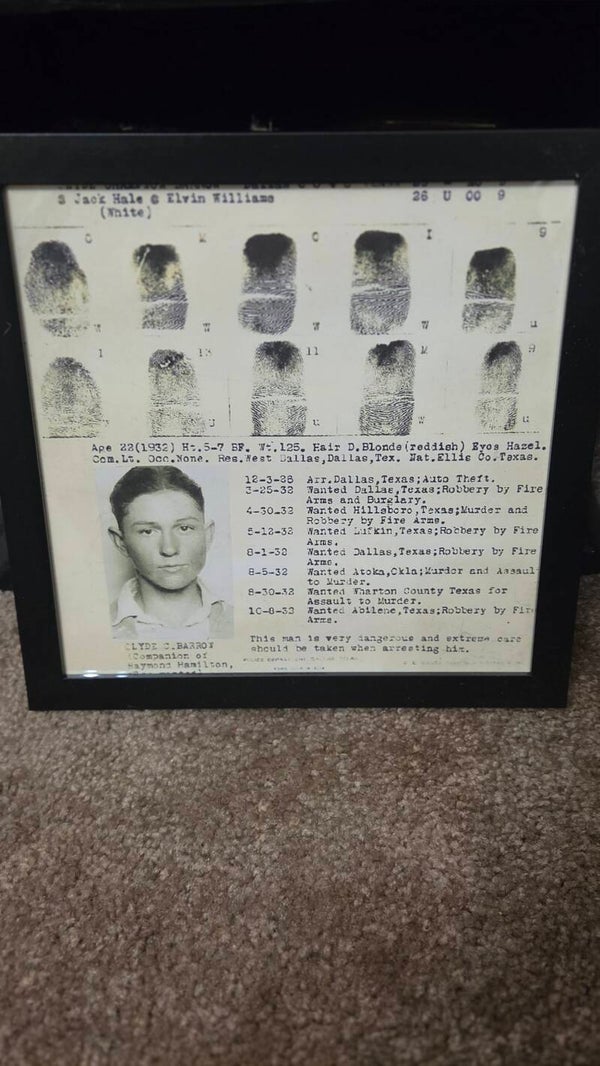 S Jack Hale @ Elvin Williams 26 U 00 9
(White)
Age 22(1932) Ht.5-7 BF. Wt.125. Hair D.Blonde(reddish) Eyes Hazel.
Com.Lt. Occ.None. Res.West Dallas,Dallas,Tex. Nat.Ellis Co.Texas.
12-3-28 Arr.Dallas,Texas;Auto Theft.
3-25-32 Wanted Dallas,Texas;Robbery by Fire
Arms and Burglary.
4-30-32 Wanted Hillsboro,Texas;Murder and
Robbery by Fire Arms.
5-12-32 Wanted Lufkin,Texas;Robbery by Fire
Arms.
8-1-32 Wanted Dallas,Texas;Robbery by Fire
Arms.
8-5-32 Wanted Atoka,Okla;Murder and Assaul
to Murder.
8-30-32 Wanted Wharton County Texas for
Assault to Murder.
10-8-32 Wanted Abilene,Texas;Robbery by Fir
Arms.
This man is very dangerous and extreme care
should be taken when arresting him.
CLYDE C.BARROW
(Companion of
Raymond Hamilton,